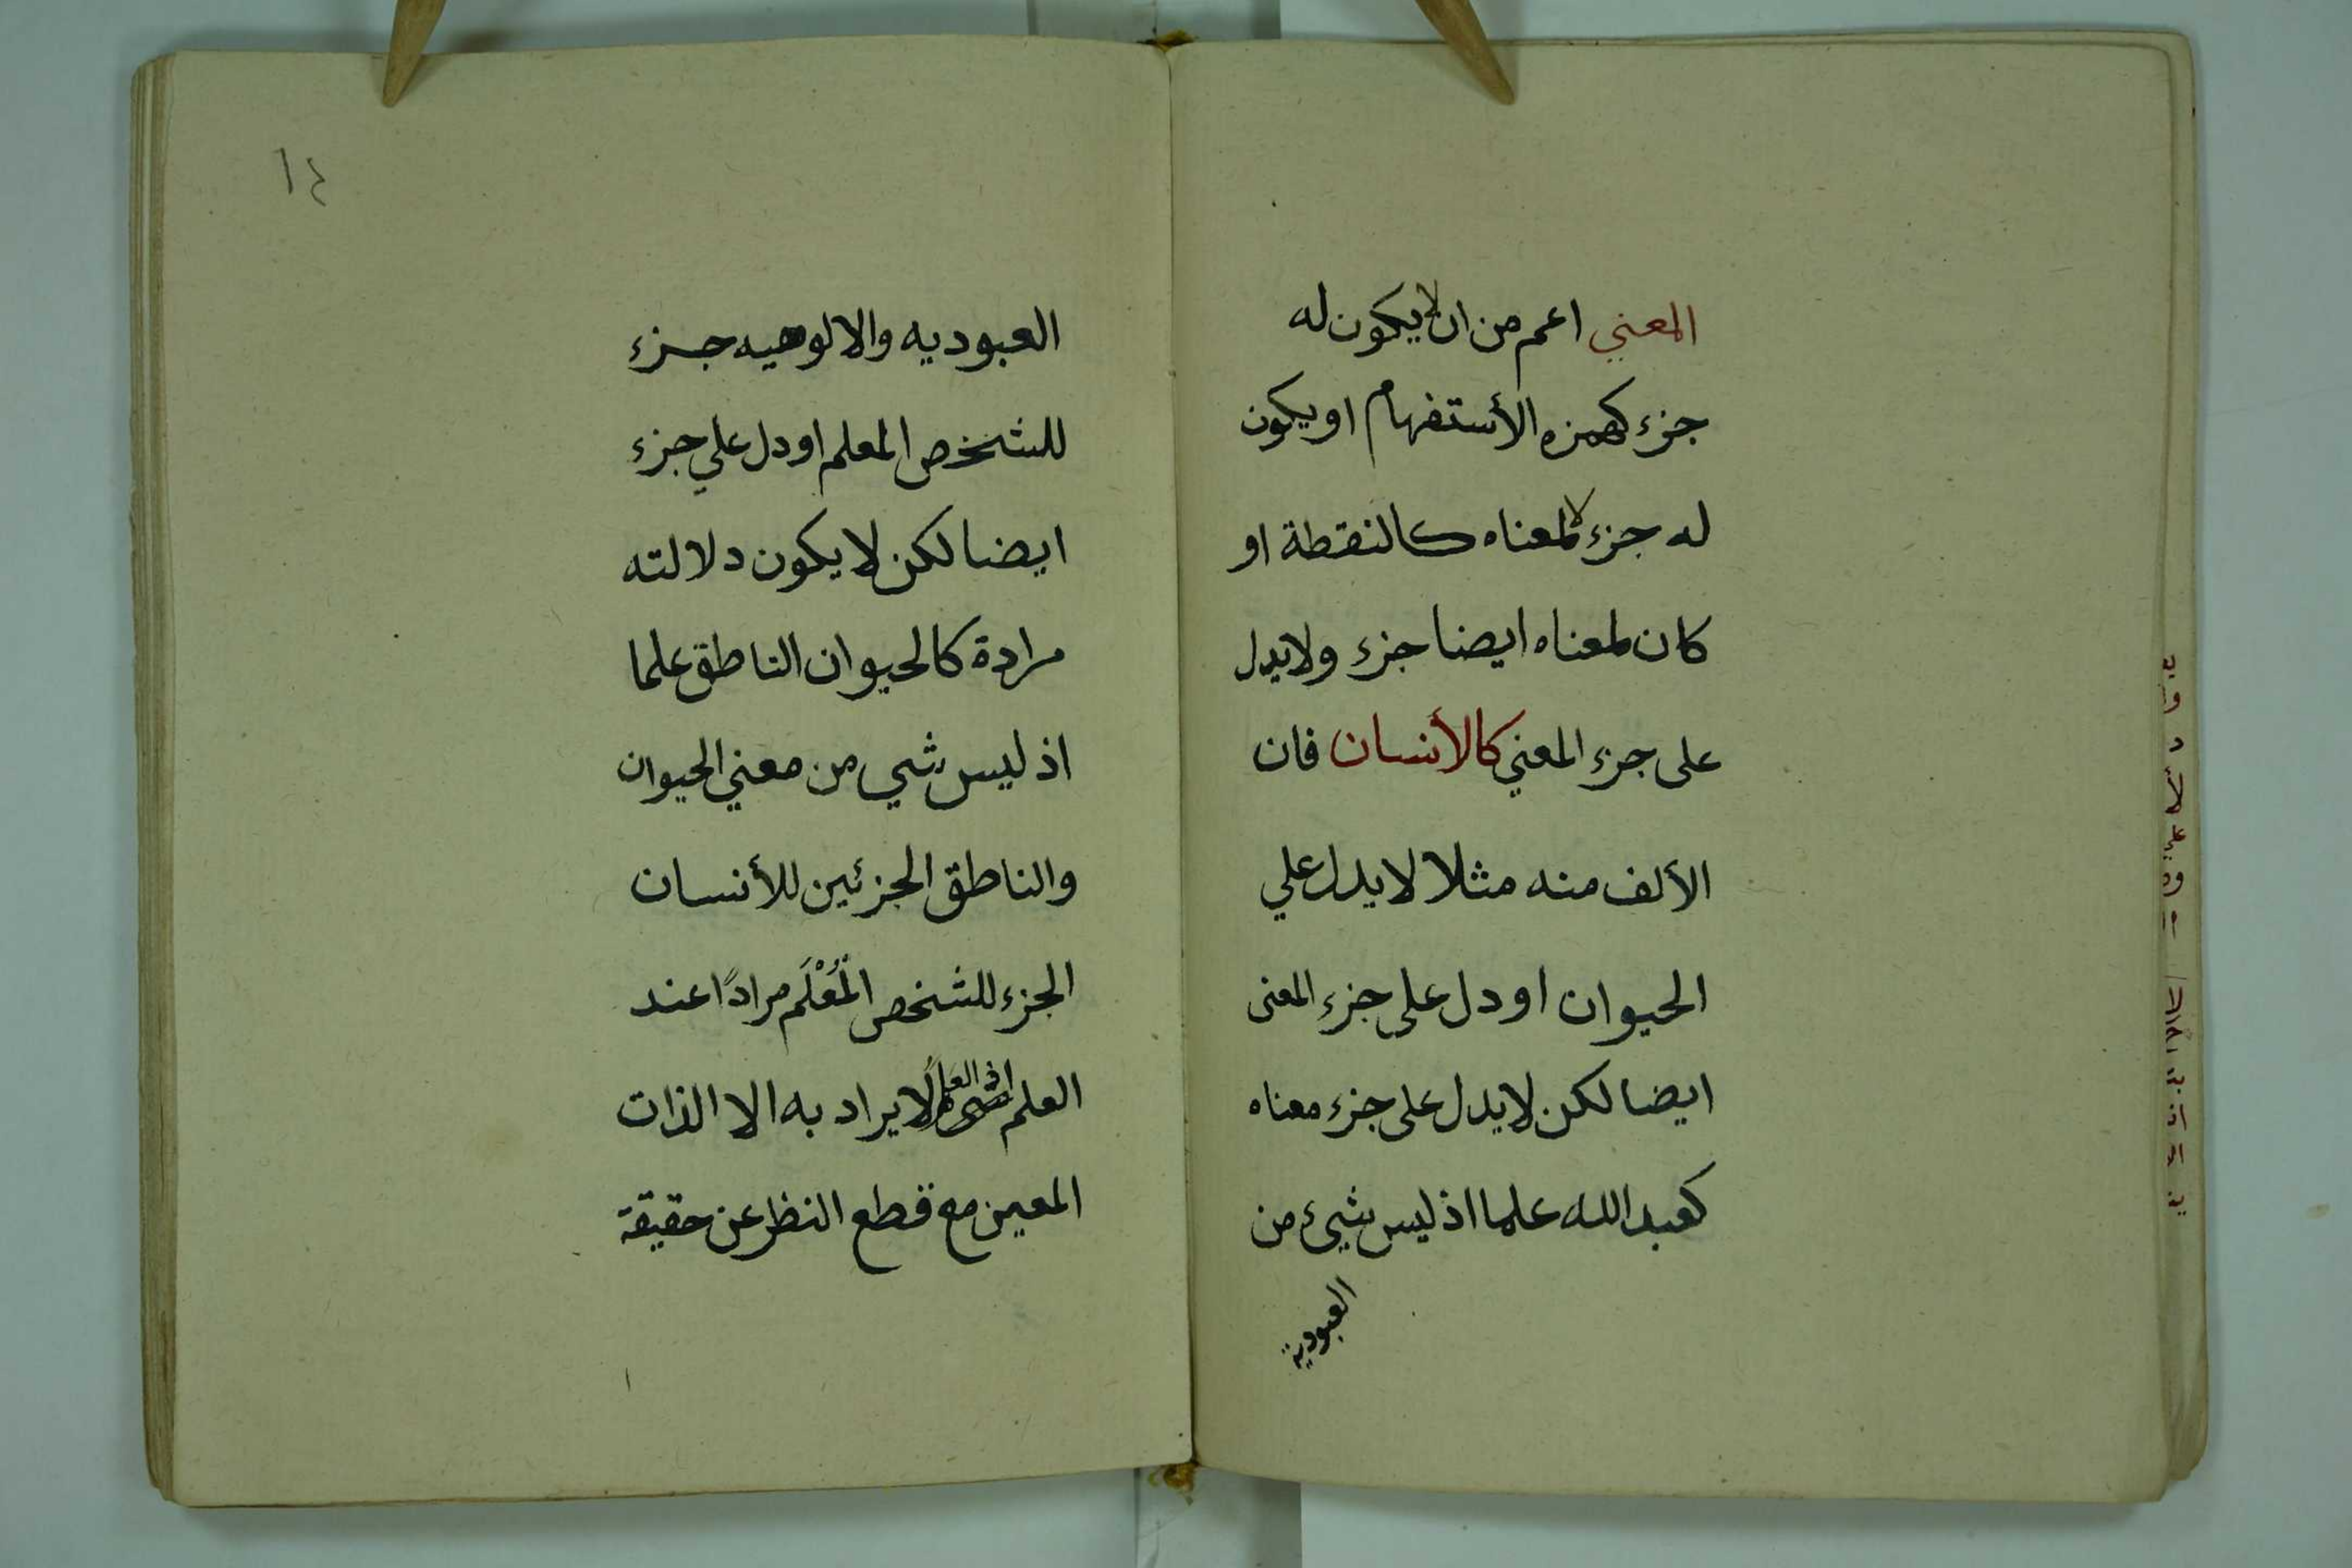 المعني اعم من ان لا يكون له
جزء كهمزه الأستفهام او يكون
له جزء لا لمعناه كالنقطة او
كان لمعناه ايضا جزء ولا يدل
على جزء المعني كالأنسان فان
الألف منه مثلا لا يدل علي
الحيوان او دل على جزء المعنى
ايضا لكن لا يدل على جزء معناه
كعبد الله علما اذ ليس شيئ من
العبودية
١٤
العبوديه والالوهيه جزء
للشخص المعلم او دل علي جزء
ايضا لكن لا يكون دلالته
مرادة كالحيوان الناطق علما
اذ ليس شي من معني الحيوان
والناطق الجزئين للأنسان
الجزء للشخص الْمُعْلَم مرادًا عند
العلم اذ العلم لا يراد به الا الذات
المعين مع قطع النظر عن حقيقة